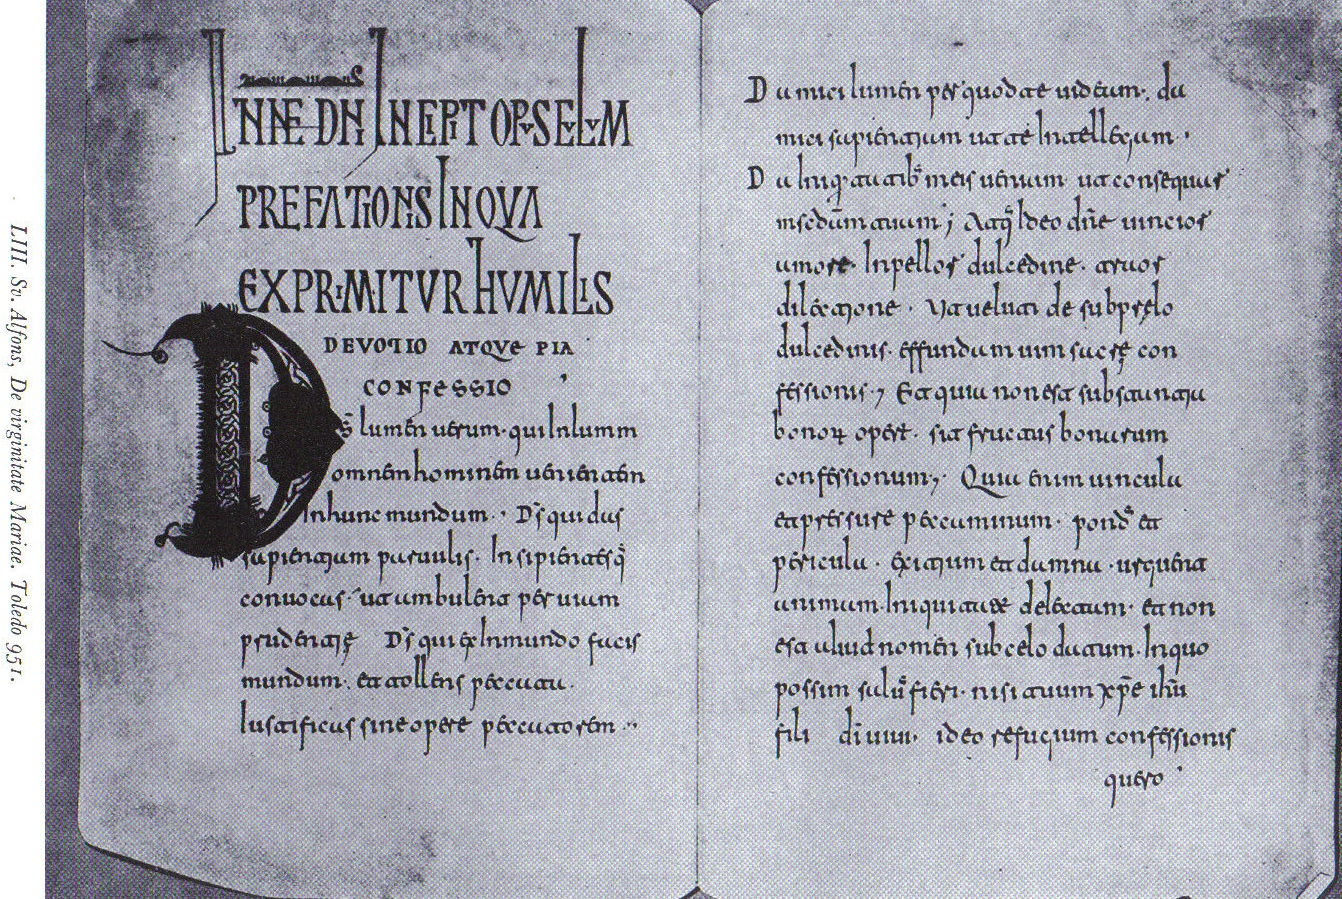 LIII. Sv. Alfons, De virginitate Mariae. Toledo 951.
IN NE DNI INCIPIT OPSCLM
PREFATIONIS IN QVA
EXPRIMITVR HVMILIS
DEVOTIO ATQVE PIA
CONFESSIO
Ds lumen uerum· qui Inlumin
omnem hominem uenientem
In hunc mundum·· Ds qui das
sapientiam paruulis· Insipientesq
conuocas ut ambulent per uiam
prudentie Ds qui ex Inmundo facis
mundum· et tollens peccata·
Iustificas sine opere peccatorem··
Da mici lumen per quod te uideam· da
mici sapientiam ut te Intellegam·
Da Iniqitatib meis ueniam ut consequar
misediam tuam; Atq Ideo dne uincior
amore· Inpellor dulcedine· artor
dilectione· Ut ueluti de sub prelo
dulcedinis· effundam uim sacre con
fessionis; Et quia non est substantia
bonor operu· sit fructus bonarum
confessionum; Quia enim uincula
et pressure peccaminum· pond et
pericula· exitium et damna· urguent
animum· Iniquitate delectatum· et non
est aliud nomen sub celo datum· In quo
possim saluu fieri· nisi tuum xpe ihu
fili di uiui· ideo refugium confessionis
quero